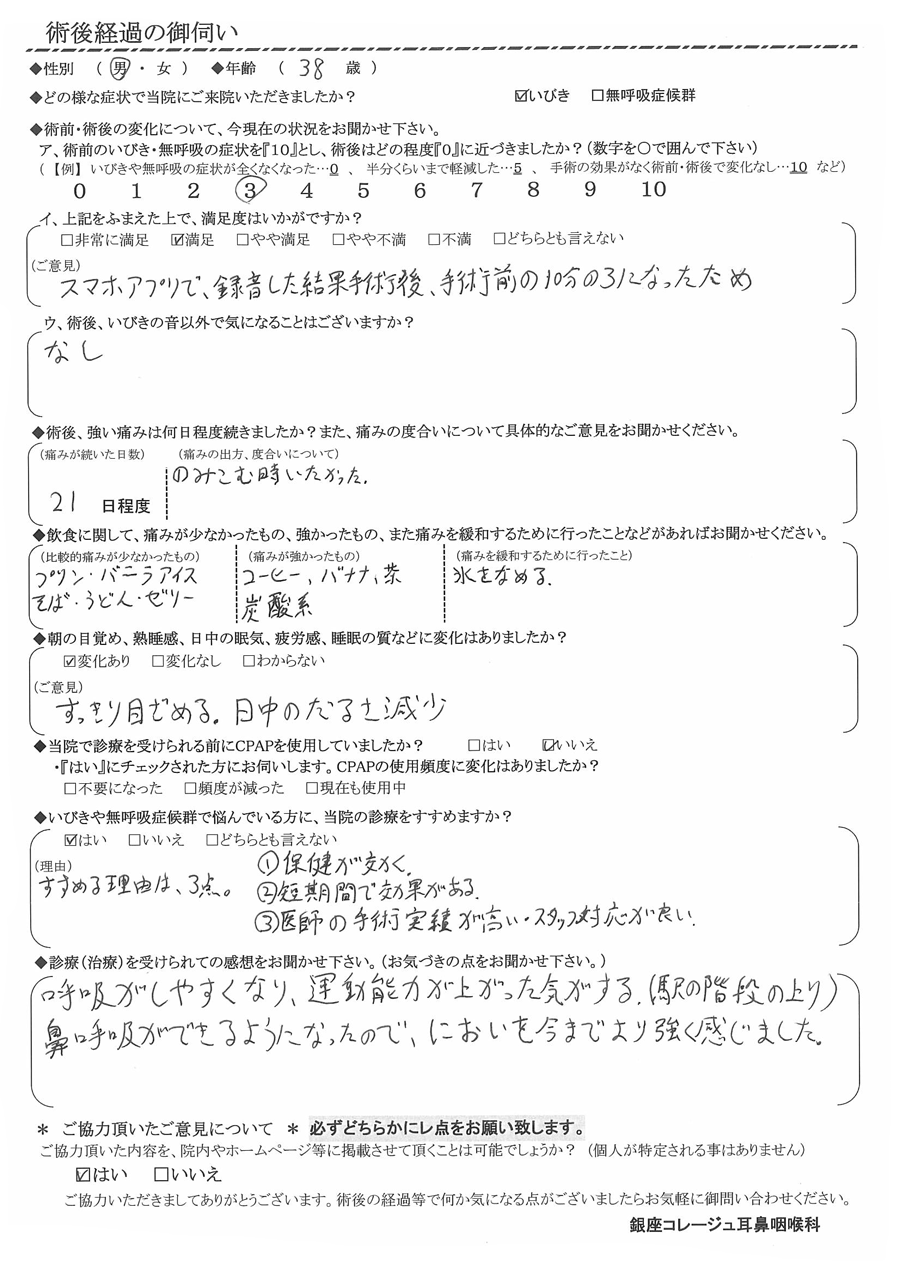 術後経過の御伺い
◆性別 (男・女) ◆年齢 (38 歳)
◆どの様な症状で当院にご来院いただきましたか? ☑いびき □無呼吸症候群
◆術前・術後の変化について、今現在の状況をお聞かせ下さい。
ア、術前のいびき・無呼吸の症状を『10』とし、術後はどの程度『0』に近づきましたか?(数字を〇で囲んで下さい)
(【例】 いびきや無呼吸の症状が全くなくなった…0 、 半分くらいまで軽減した…5 、 手術の効果がなく術前・術後で変化なし…10 など)
0 1 2 3 4 5 6 7 8 9 10
イ、上記をふまえた上で、満足度はいかがですか?
□非常に満足 ☑満足 □やや満足 □やや不満 □不満 □どちらとも言えない
(ご意見)
スマホアプリで、録音した結果手術後、手術前の10分の3になったため
ウ、術後、いびきの音以外で気になることはございますか?
なし
◆術後、強い痛みは何日程度続きましたか?また、痛みの度合いについて具体的なご意見をお聞かせください。
(痛みが続いた日数) (痛みの出方、度合いについて)
のみこむ時いたかった.
21 日程度
◆飲食に関して、痛みが少なかったもの、強かったもの、また痛みを緩和するために行ったことなどがあればお聞かせください。
(比較的痛みが少なかったもの) (痛みが強かったもの) (痛みを緩和するために行ったこと)
プリン・バニラアイス コーヒー、バナナ、茶 氷をなめる.
そば・うどん・ゼリー 炭酸系
◆朝の目覚め、熟睡感、日中の眠気、疲労感、睡眠の質などに変化はありましたか?
☑変化あり □変化なし □わからない
(ご意見)
すっきり目ざめる。日中のだるさ減少
◆当院で診療を受けられる前にCPAPを使用していましたか? □はい ☑いいえ
・『はい』にチェックされた方にお伺いします。CPAPの使用頻度に変化はありましたか?
□不要になった □頻度が減った □現在も使用中
◆いびきや無呼吸症候群で悩んでいる方に、当院の診療をすすめますか?
☑はい □いいえ □どちらとも言えない
(理由)
すすめる理由は、3点。 ①保健が効く.
②短期間で効果がある.
③医師の手術実績が高い・スタッフ対応が良い.
◆診療(治療)を受けられての感想をお聞かせ下さい。(お気づきの点をお聞かせ下さい。)
呼吸がしやすくなり、運動能力が上がった気がする.(駅の階段の上り)
鼻呼吸ができるようになったので、においを今までより強く感じました。
* ご協力頂いたご意見について * 必ずどちらかにレ点をお願い致します。
ご協力頂いた内容を、院内やホームページ等に掲載させて頂くことは可能でしょうか? (個人が特定される事はありません)
☑はい □いいえ
ご協力いただきましてありがとうございます。術後の経過等で何か気になる点がございましたらお気軽に御問い合わせください。
銀座コレージュ耳鼻咽喉科